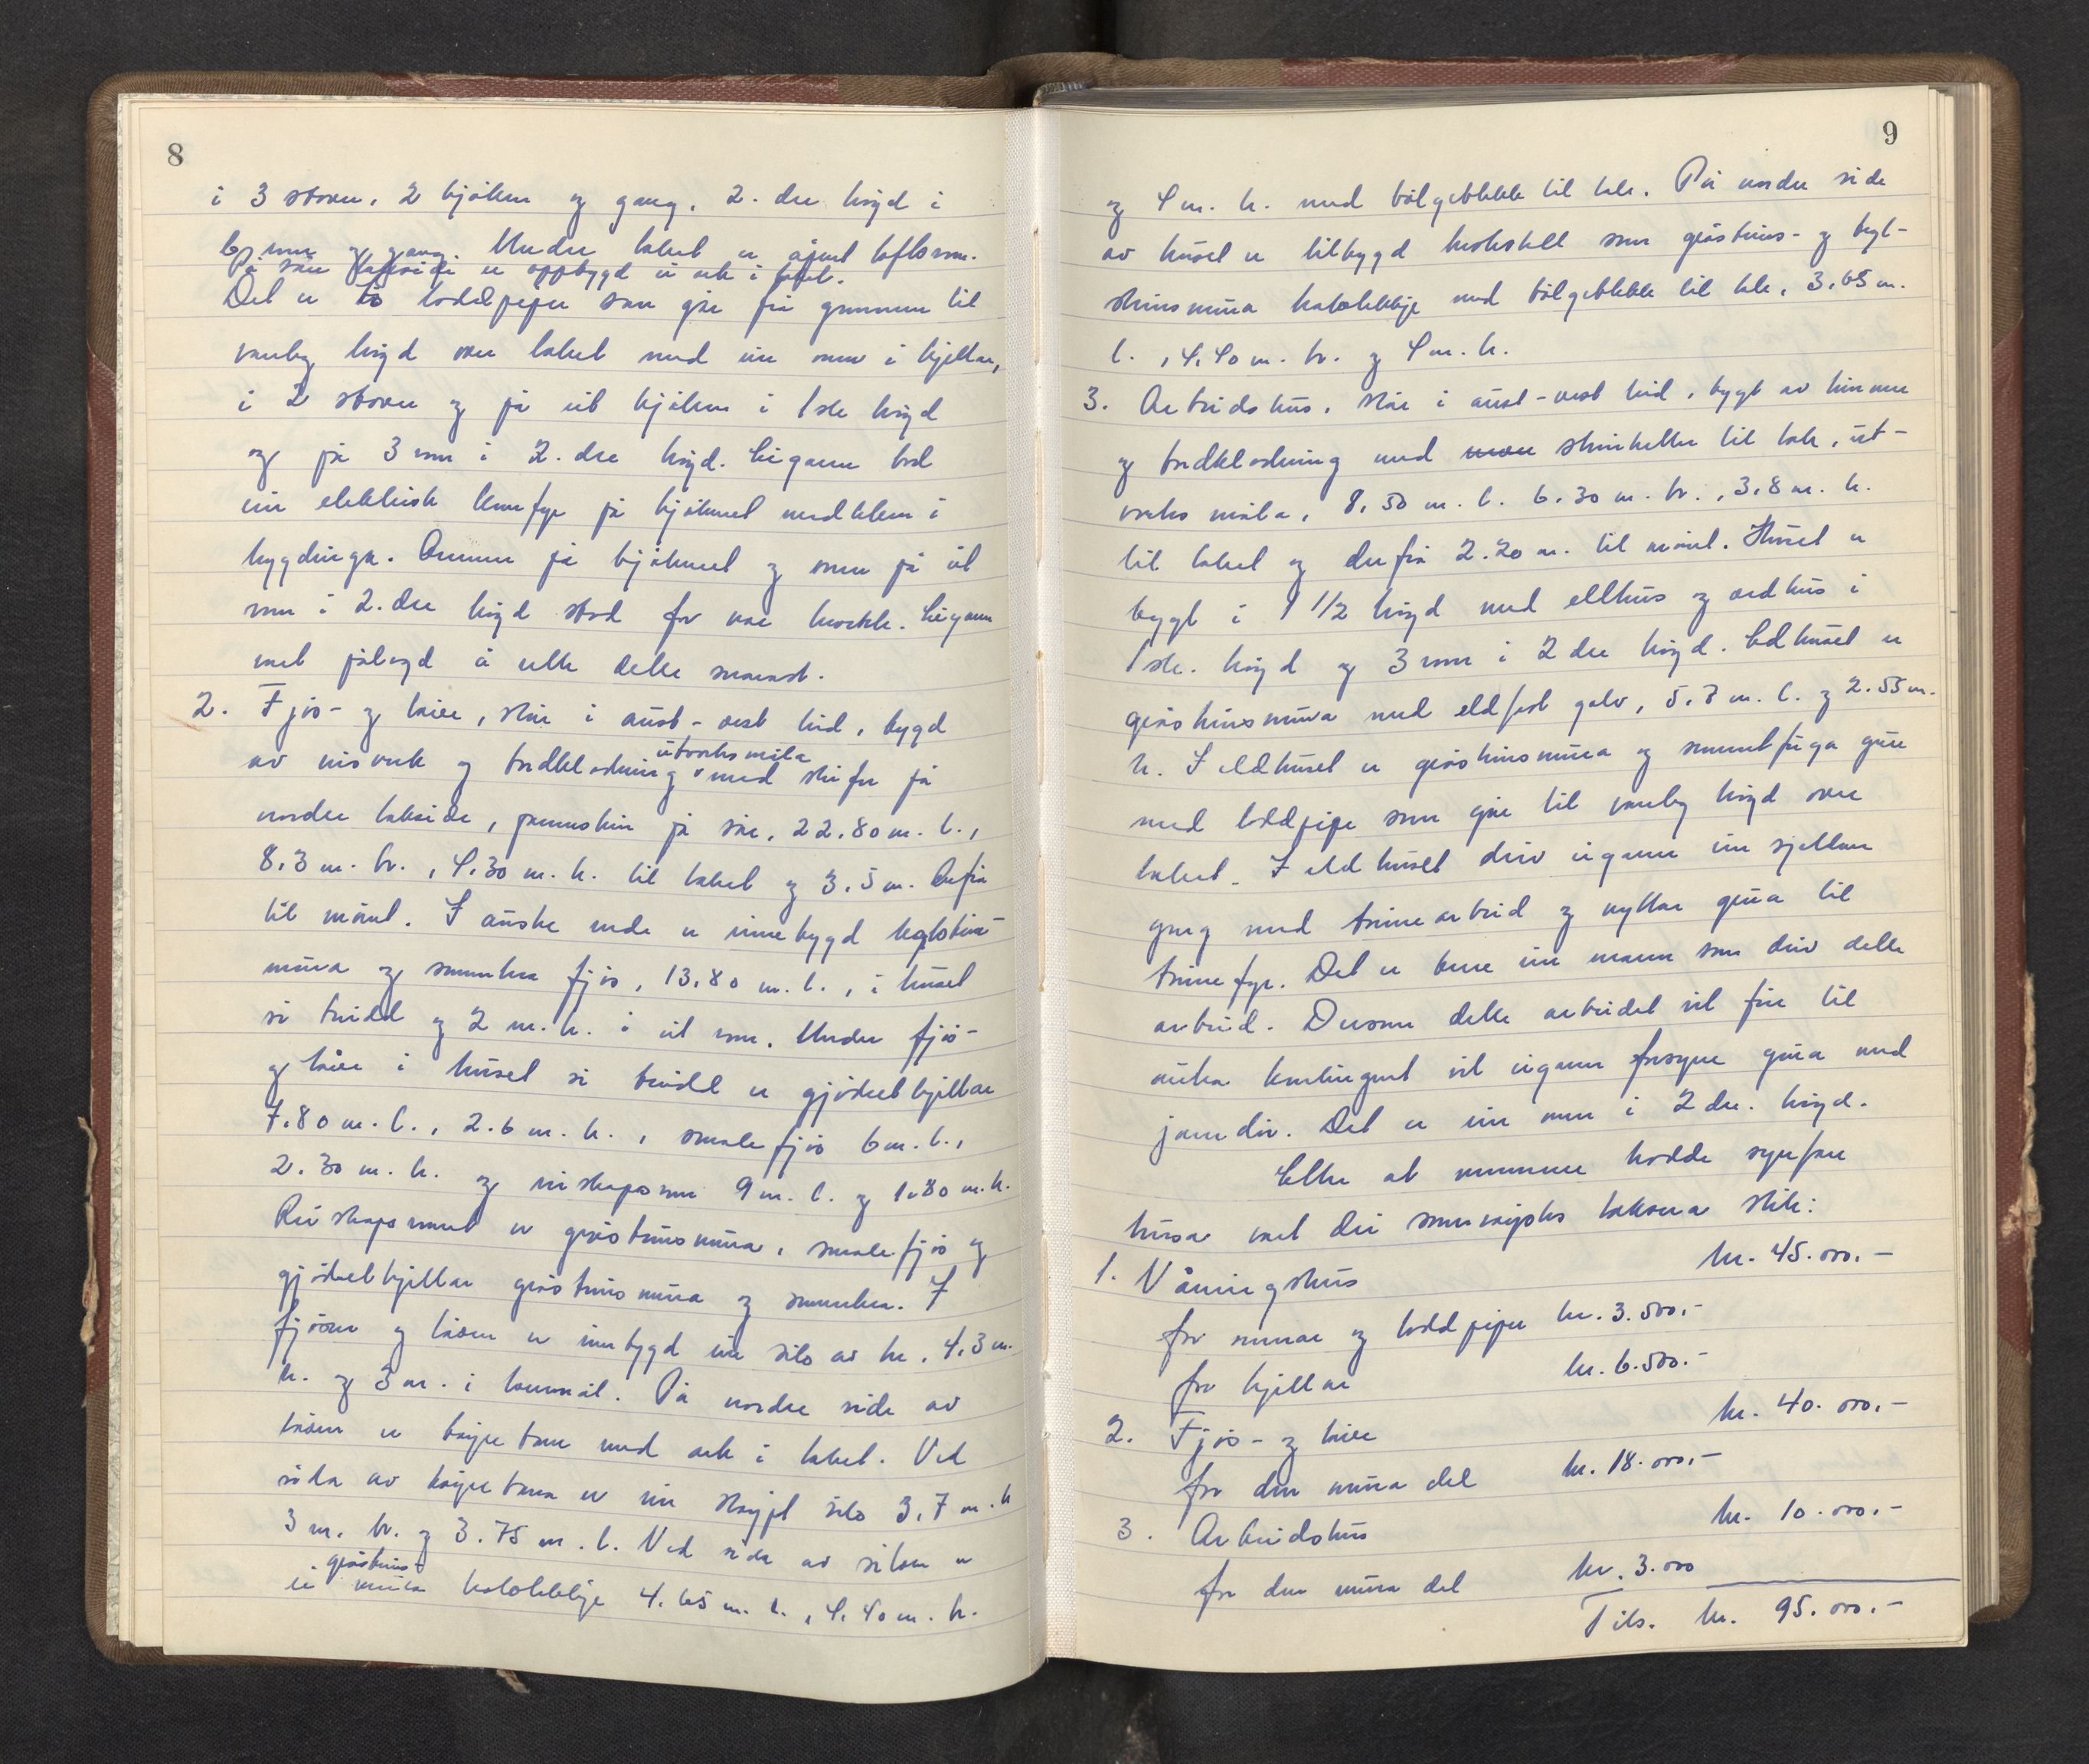 8
i 3 stover, 2 kjøken og gang, 2. dre høgd i
6 rom og gang. Under taket er åpent loftsrom.
På søre takside er oppbygd ei ark i taket.
Det er to loddpiper som går frå grunnen til
vanleg høgd over taket med ein omn i kjellar,
i 2 stover og på eit kjøken i 1ste høgd
og på 3 rom i 2. dre høgd. Eigaren bad
ein elektrisk komfyr på kjøkenet medteken i
bygdinga. Omnen på kjøkenet og omn på eit
rom i 2. dre høgd stod for nær treverk. Eigaren
vart pålagd å rette dette snarast.
2. Fjøs- og løe, står i aust-vest leid, bygd
av reisverk og bordkledning utvortes måla med skifer på
nordre takside, pannestein på søre, 22.80 m. l.,
8.3 m. br., 4.30 m. h. til taket og 3.5 m. derfrå
til mønet. I austre ende er innebygd teglsteins-
mura og sementera fjøs, 13.80 m. l., i huset
si breidd og 2 m. h. i eit rom. Under fjøs-
og løe i huset si breidd er gjødselkjellar
7.80 m. l., 2.6 m. h., smalefjøs 6 m. l.,
2.30 m. h. og reiskapsrom 9 m. l. og 1.80 m. h.
Reiskapsromet er gråsteinsmura, smalefjøs og
gjødselkjellar gråsteinsmura og sementera. I
fjøsen og løeen er innbygd ein silo av tre, 4.3 m.
h. og 3 m. i tverrmål. På nordre side av
løeen er køyrebru med ark i taket. Ved
sida av køyrebrua er ein støypt silo 3.7 m. h
3 m. br. og 3.75 m. l. Ved sida av siloen er
ei gråsteins- mura kaldtekkje 4.65 m. l., 4.40 m. br.
9
og 4 m. h. med bølgeblekk til tak. På nordre side
av huset er tilbygd traktorstall som gråsteins- og tegl-
steinsmura med bølgeblekk til tak, 3.65 m.
l., 4.40 m. br. og 4 m. h.
3. Arbeidshus, står i aust-vest leid, bygt av tømmer
og bordkledning med steinheller til tak, ut-
vortes måla, 8.50 m. l. 6.30 m. br., 3.8 m. h.
til taket og derfrå 2.20 m. til mønet. Huset er
bygt i 1 1/2 høgd med eldhus og vedhus i
1ste. høgd og 3 rom i 2 dre høgd. Eldhuset er
gråsteinsmura med eldfast golv, 5.7 m. l. og 2.55 m.
h. I eldhuset er gråsteinsmura og sementfuga grue
med loddpipe som går til vanleg høgd over
taket. I eldhuset driv eigaren ein sjeldan
gong med smiearbeid og nyttar grua til
smiefyr. Det er bare ein mann som driv dette
arbeid. Dersom dette arbeidet vil føre til
auka kontingent vil eigaren forsyne grua med
jarndør. Det er ein omn i 2 dre. høgd.
Etter at nemnda hadde synfare
husa vart dei samrøystes taksera slik:
1. Våningshus kr. 45.000.-
for murar og loddpiper kr. 3.500.-
for kjellar kr. 6.500.-
2. Fjøs- og løe kr. 40.000.-
for den mura del kr. 18.000.-
3. Arbeidshus kr. 10.000.-
for den mura del kr. 3.000
Tils. kr. 95.000.-